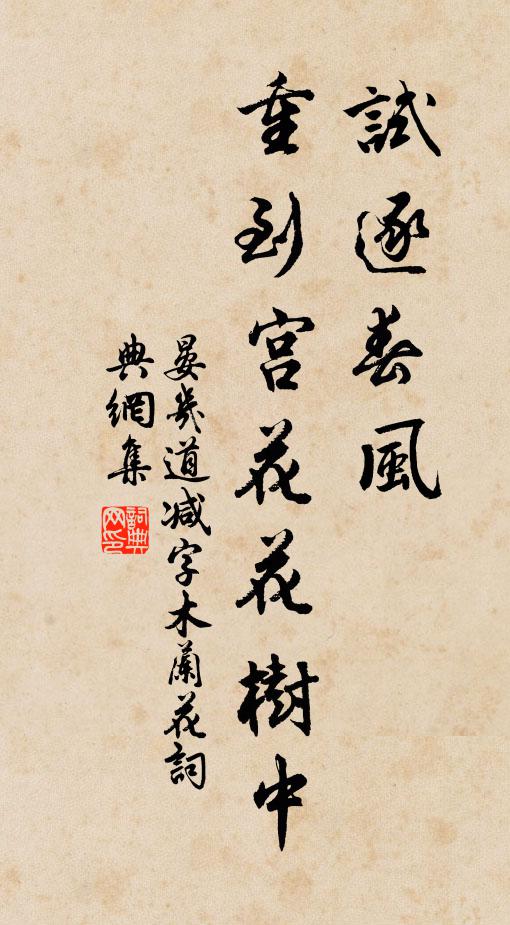 試逐春風
重到宫花花樹中
晏幾道減字木蘭花詞
典網集
詞典網印